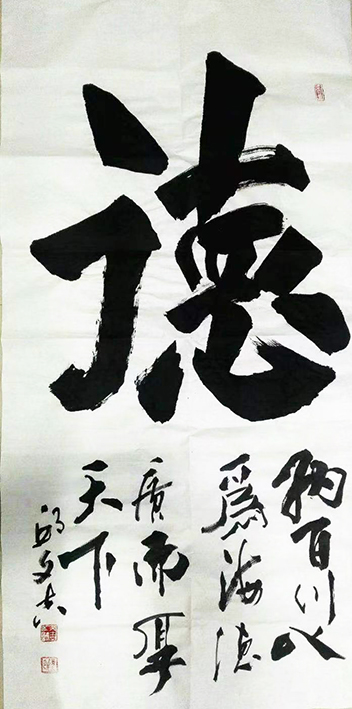 德
納百川以
爲海德
廣而厚
天下